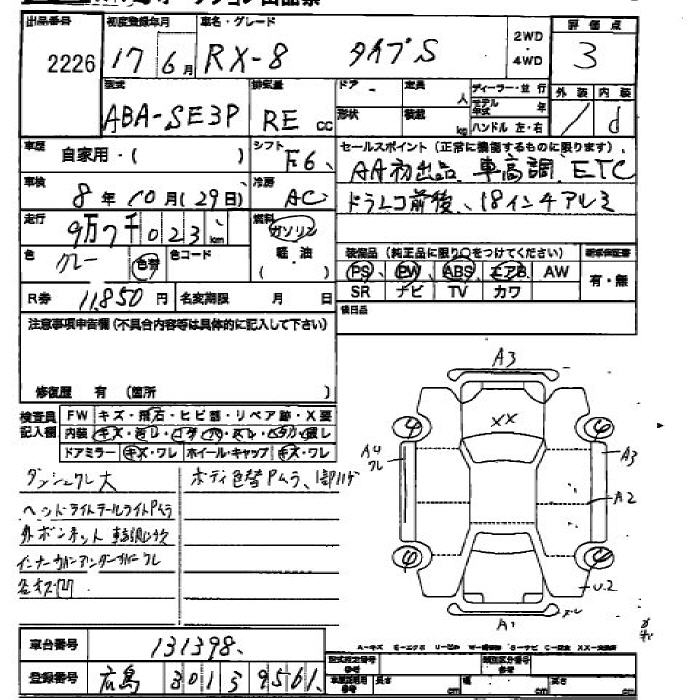 出品番号 初度登録年月 車名・グレード 2WD 評価点
2226 17年 6月 RX-8 タイプS 4WD 3
型式 排気量 ドア 定員 人 ディーラー・並行 外装 内装
ABA-SE3P RE cc 形状 積載 kg モデル年式 年 ハンドル 左・右 / d
車歴 自家用・( ) シフト F6 セールスポイント(正常に機能するものに限ります)
AA初出品 車高調 ETC
車検 8年10月(29日) 冷房 AC ドラレコ前後、18インチアルミ
走行 9万7千023 km 燃料 ガソリン
色 グレー 色替 色コード 軽・油 ( )
装備品(純正品に限り○をつけてください)
PS PW ABS エアB AW 有・無
SR ナビ TV カワ
R券 11,850円 名変期限 月 日 後日品
注意事項申告欄(不具合内容等は具体的に記入して下さい)
修復歴 有(箇所 )
検査員 FW キズ・飛石・ヒビ割・リペア跡・X要
記入欄 内装 キズ・汚れ・コゲ・穴・スレ・ビス穴・風し
ドアミラー キズ・ワレ ホイール・キャップ キズ・ワレ
ダッシュワレ大 ボディ色替Pムラ、1部ハゲ
ヘッドライトテールライトPムラ
外ボンネット
インナーカバーアンダーカバーワレ
各キズ凹
A3
XX
A4
ワレ
A3
A2
U2
A1
車台番号 131398
登録番号 広島 301 ら 9561
A-キズ
型式指定番号 類別区分番号
長さ cm 幅 cm 高さ cm